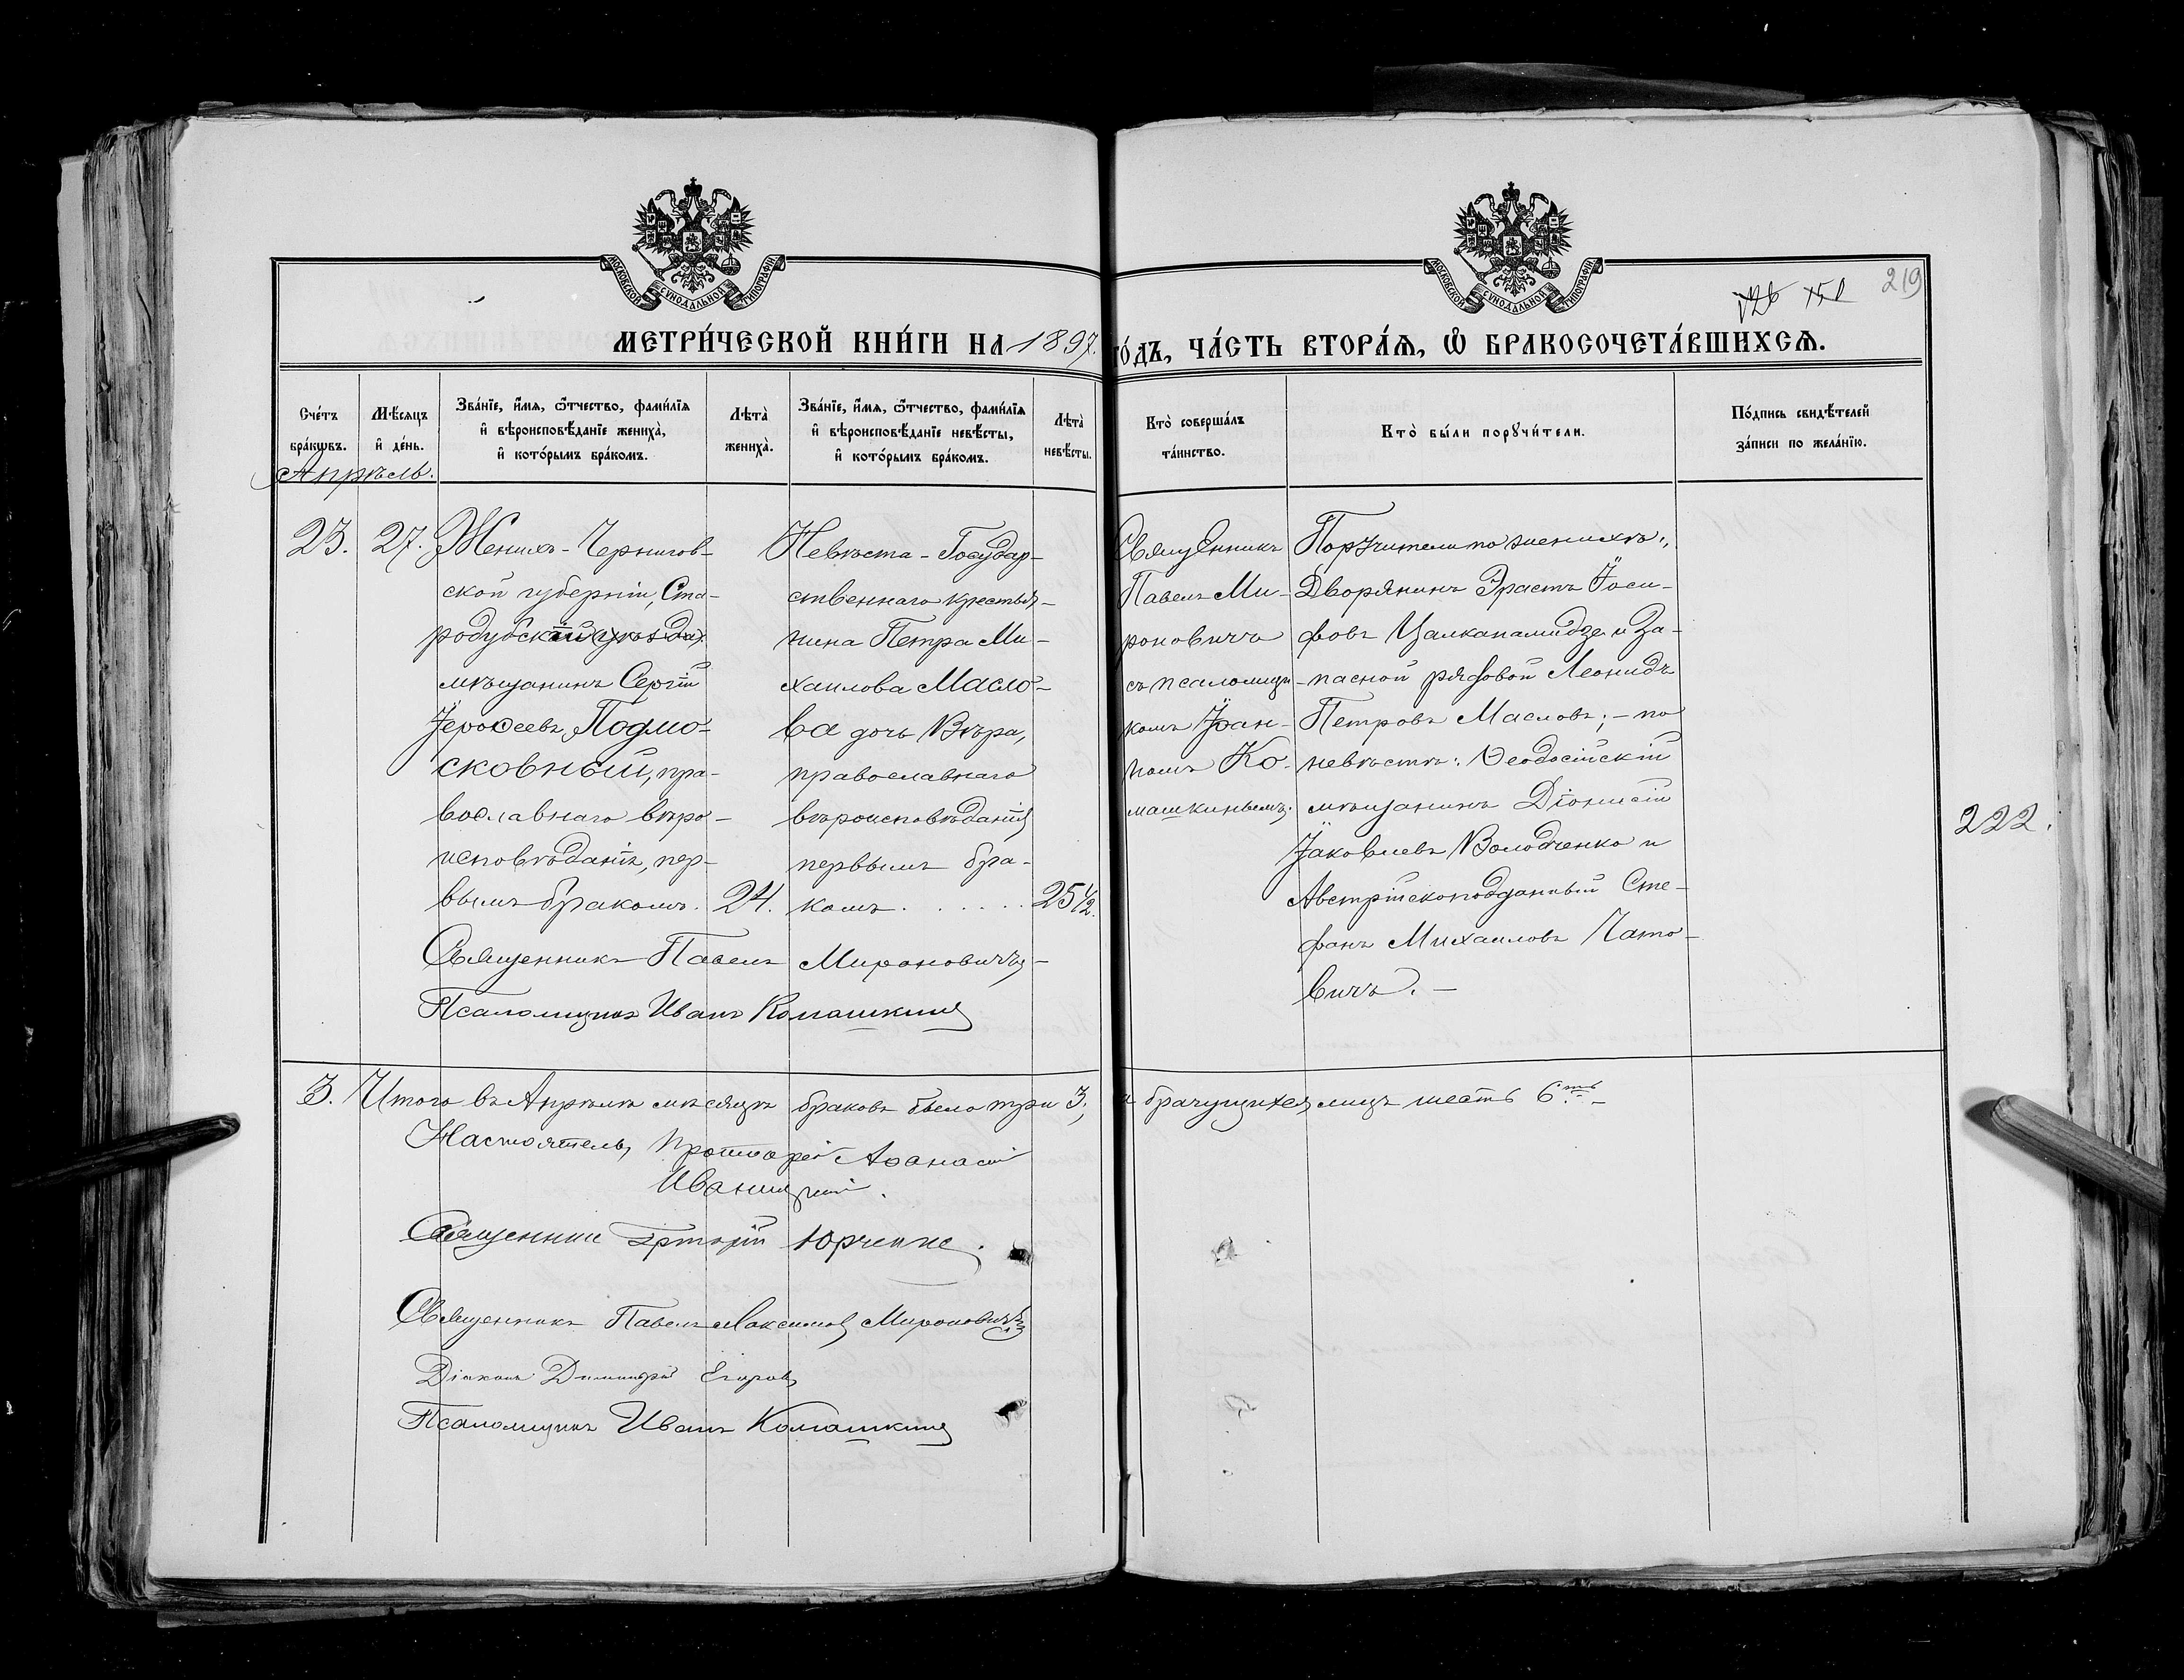 МОСКОВСКОЙ СѴНОДАЛЬНОЙ ТИПОГРАФІИ
МОСКОВСКОЙ СѴНОДАЛЬНОЙ ТИПОГРАФІИ
151 219
МЕТРИ́ЧЕСКОЙ КНИ́ГИ НА 1897. ГО́ДЪ, ЧА́СТЬ ВТОРА́Ѧ, Ѡ БРАКОСОЧЕТА́ВШИХСѦ.
Сче́тъ бра́кѡвъ.
Мѣ́сѧцъ и҆ де́нь.
Зва́нїе, и҆́мѧ, ѻ҆́тчество, фами́лїѧ
и҆ вѣроисповѣ́данїе жениха̀,
и҆ кото́рымъ бра́комъ.
Лѣта̀ жениха̀.
Зва́нїе, и҆́мѧ, ѻ҆́тчество, фами́лїѧ
и҆ вѣроисповѣ́данїе невѣ́сты,
и҆ кото́рымъ бра́комъ.
Лѣта̀ невѣ́сты.
Кто̀ соверша́лъ
та́инство.
Кто̀ бы́ли порꙋчи́тели.
По́дпись свидѣ́телей
за́писи по жела́нїю.
Апрѣль.
23. 27.
Женихъ - Чернигов-
ской губерніи, Ста-
родубскій уѣзда
мѣщанинъ Сергій
Іероѳеевъ Подмо-
сковный, пра-
вославнаго вѣро-
исповѣданія, пер-
вымъ бракомъ. 24.
Невѣста - Государ-
ственнаго крестья-
нина Петра Ми-
хаилова Масло-
ва дочь Вѣра,
православнаго
вѣроисповѣданія
первымъ бра-
комъ . . . . . . 25½.
Священникъ Павелъ Мироновичъ
Псаломщикъ Иванъ Комашкинъ
Священникъ
Павелъ Ми-
роновичъ
съ псаломщи-
комъ Іоан-
номъ Ко-
машкинымъ.
Поручители по женихѣ:
Дворянинъ Эрастъ Іоси-
фовъ Цалкаламидзе и За-
пасной рядовой Леонидъ
Петровъ Масловъ; - по
невѣстѣ: Ѳеодосійскій
мѣщанинъ Діонисій
Іаковлевъ Володченко и
Австрійскоподданный Сте-
фанъ Михаиловъ Чато-
вичъ. -
222.
3. Итого въ Апрѣлѣ мѣсяцѣ браковъ было три 3, а брачущихся лицъ шесть 6ть. -
Настоятель, Протоіерей Аѳанасій
Иваницкій.
Священникъ Григорій Юрченко.
Священникъ Павелъ Максимовъ Мироновичъ
Діаконъ Димитрій Егоровъ
Псаломщикъ Иванъ Комашкинъ